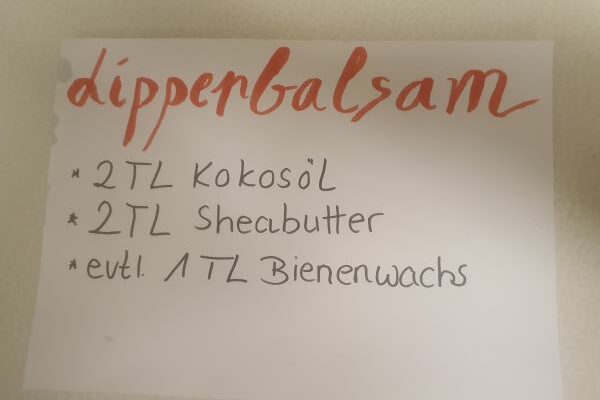 Lippenbalsam
* 2TL Kokosöl
* 2TL Sheabutter
* evtl. 1TL Bienenwachs